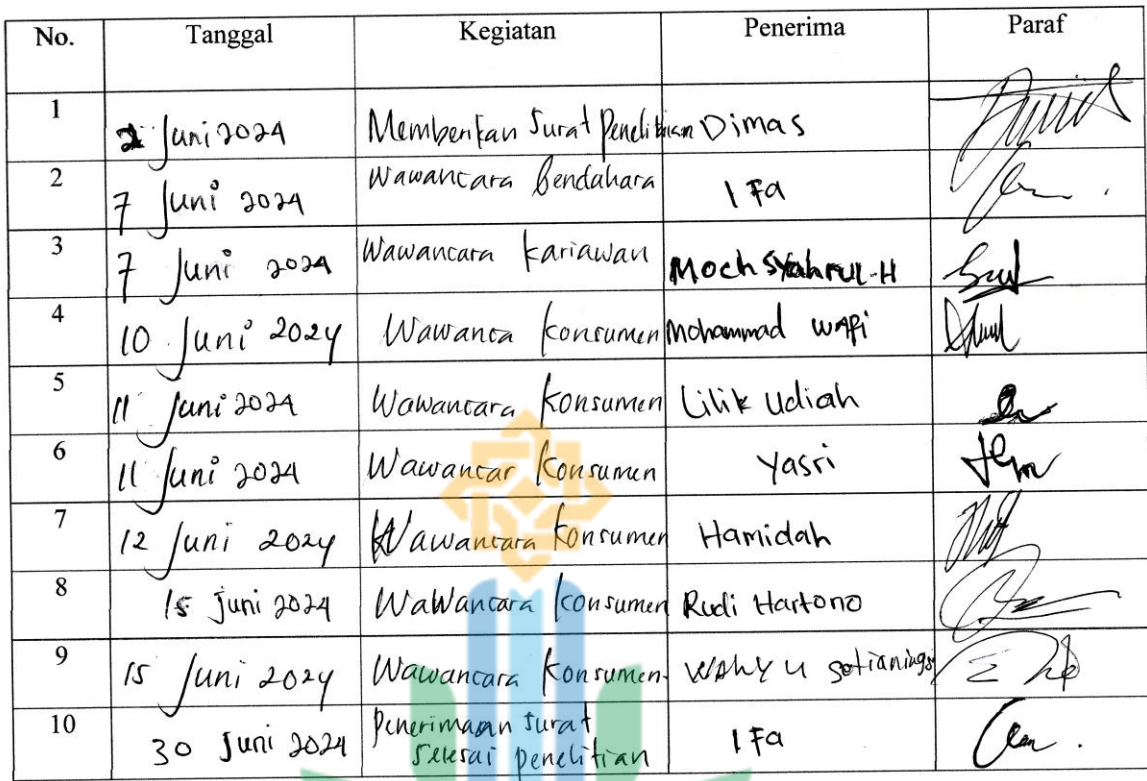 No. Tanggal Kegiatan Penerima Paraf
1 2 Juni 2024 Memberikan Surat Penelitian Dimas
2 7 Juni 2024 Wawancara Bendahara Ifa
3 7 Juni 2024 Wawancara kariawan Moch Syahrul.H
4 10 Juni 2024 Wawanca konsumen Mohammad WAFi
5 11 Juni 2024 Wawancara konsumen Lilik Udiah
6 11 Juni 2024 Wawancar konsumen Yasri
7 12 Juni 2024 Wawancara konsumen Hamidah
8 15 Juni 2024 Wawancara konsumen Rudi Hartono
9 15 Juni 2024 Wawancara konsumen WAhYU setianings
10 30 Juni 2024 Penerimaan surat Ifa
selesai penelitian